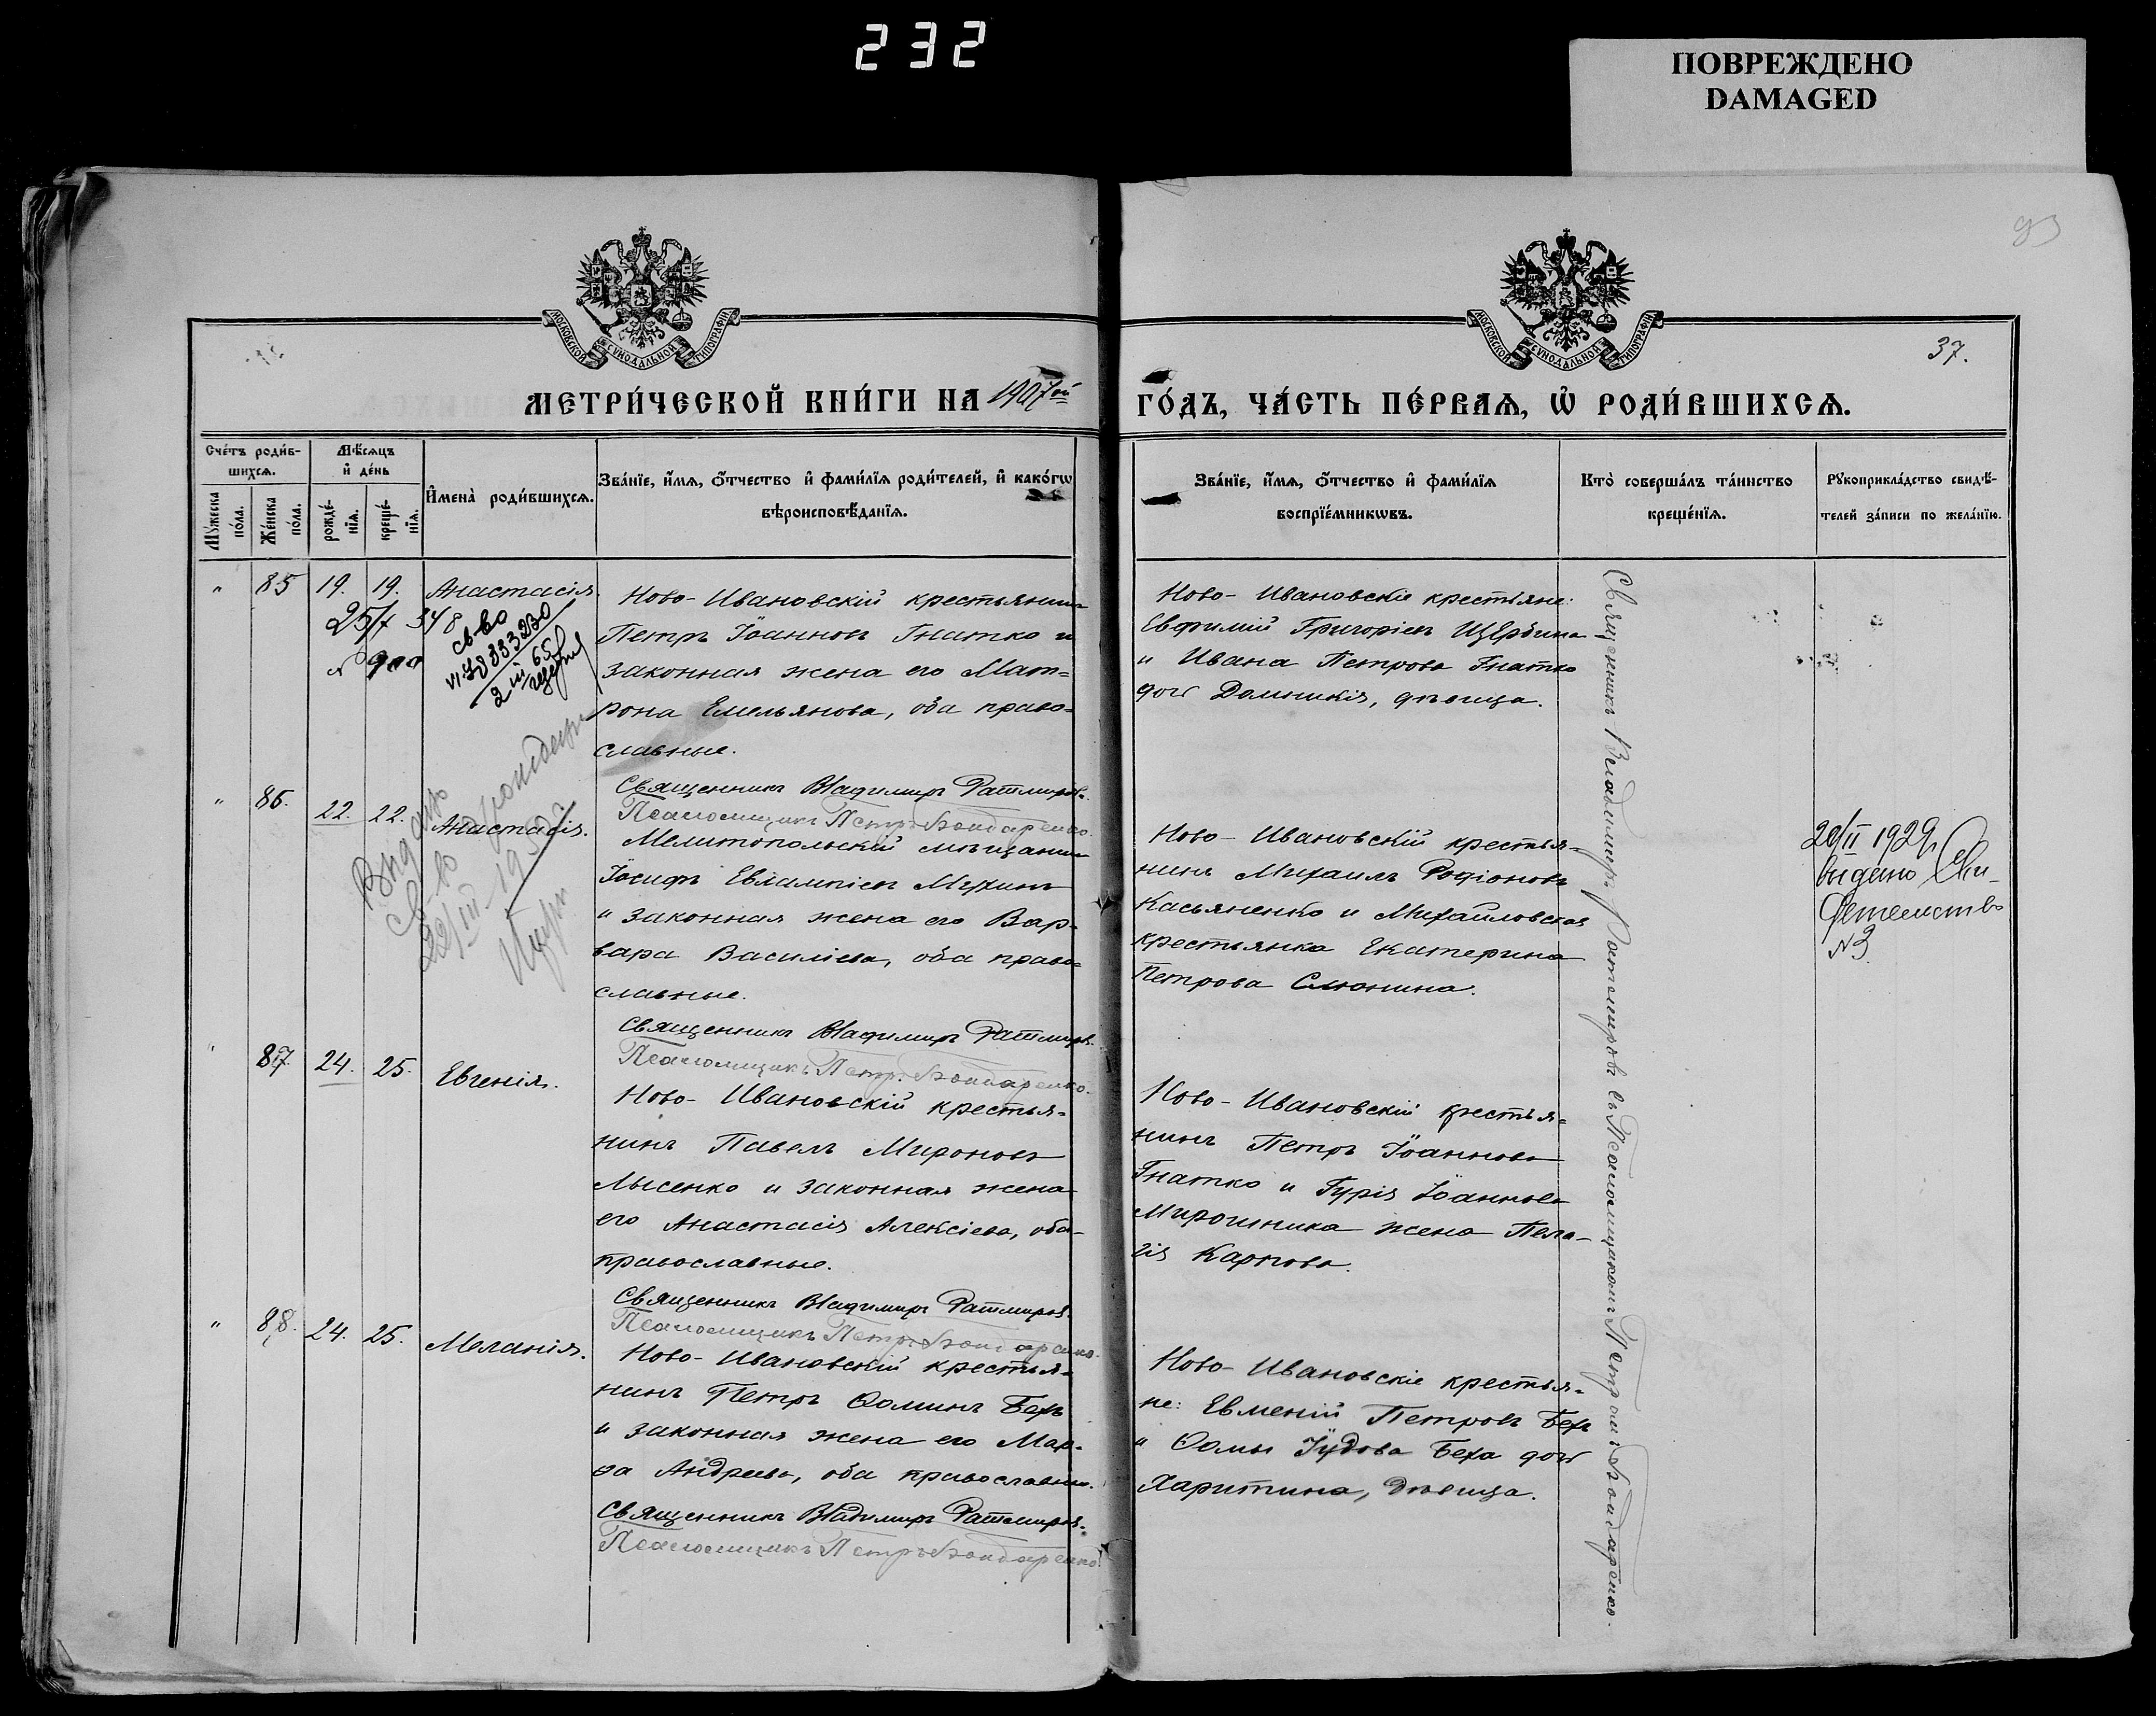 232
ПОВРЕЖДЕНО
DAMAGED
93
37.
МОСКОВСКОЙ СѴНОДАЛЬНОЙ ТИПОГРАФІИ
МОСКОВСКОЙ СѴНОДАЛЬНОЙ ТИПОГРАФІИ
МЕТРИ́ЧЕСКОЙ КНИ́ГИ НА 1907ой
ГО́ДЪ, ЧА́СТЬ ПЕ́РВАЯ, Ѽ РОДИ́ВШИХСѦ.
Сче́тъ роди́в-
шихсѧ.
Мꙋ́жеска по́ла.
Же́нска по́ла.
Мѣ́сѧцъ
и҆ де́нь
рожде́-
нїѧ.
креще́-
нїѧ.
И҆мена̀ роди́вшихсѧ.
Зва́нїе, и҆́мѧ, ѻ҆́тчество и҆ фами́лїѧ роди́телей, и҆ како́гѡ
вѣроисповѣ́данїѧ.
Зва́нїе, и҆́мѧ, ѻ҆́тчество и҆ фами́лїѧ
воспрїе́мникѡвъ.
Кто̀ соверша́лъ та́инство
креще́нїѧ.
Рꙋкоприкла́дство свидѣ́-
телей за́писи по жела́нїю.
" 85 19. 19. Анастасія.
25/7 348
N 900
св-во
VI-ЯЭ 333230
2 III 65
Ново-Ивановскій крестьянинъ
Петръ Іоанновъ Гнатко и
законная жена его Мат-
рона Емельянова, оба право-
славные.
Священникъ Владимиръ Ратмировъ.
Псаломщикъ Петръ Бондаренко.
Ново-Ивановскіе крестьяне:
Евфимій Григоріевъ Щербина
и Ивана Петрова Гнатко
дочь Домникія, дѣвица.
" 86. 22. 22. Анастасія.
Видано
св-во
22/III-1950 г.
Мелитопольскій мѣщанинъ
Іосифъ Евлампіевъ Мухинъ
и законная жена его Вар-
вара Василіева, оба право-
славные.
Священникъ Владимиръ Ратмировъ.
Псаломщикъ Петръ Бондаренко.
Ново-Ивановскій крестья-
нинъ Михаилъ Родіоновъ
Касьяненко и Михайловская
крестьянка Екатерина
Петрова Слюнина.
20/II 1929 г.
видано Сви-
детельство
N3
" 87. 24. 25. Евгенія.
Ново-Ивановскій крестья-
нинъ Павелъ Мироновъ
Лысенко и законная жена
его Анастасія Алексіева, оба
православные.
Священникъ Владимиръ Ратмировъ.
Псаломщикъ Петръ Бондаренко.
Ново-Ивановскій крестья-
нинъ Петръ Іоанновъ
Гнатко и Гурія Іоаннова
Мирошника жена Пела-
гія Карпова.
" 88. 24. 25. Меланія.
Ново-Ивановскій крестья-
нинъ Петръ Ѳоминъ Бехъ
и законная жена его Мар-
ѳа Андреева, оба православные.
Священникъ Владимиръ Ратмировъ.
Псаломщикъ Петръ Бондаренко.
Ново-Ивановскіе крестья-
не: Евменій Петровъ Бехъ
и Ѳомы Іудова Беха дочь
Харитина, дѣвица.
Священникъ Владимиръ Ратмировъ съ Псаломщикомъ Петромъ Бондаренко.